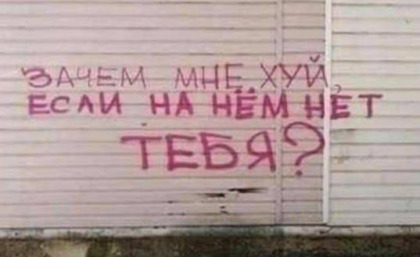 ЗАЧЕМ МНЕ ХУЙ,
ЕСЛИ НА НЁМ НЕТ
ТЕБЯ?